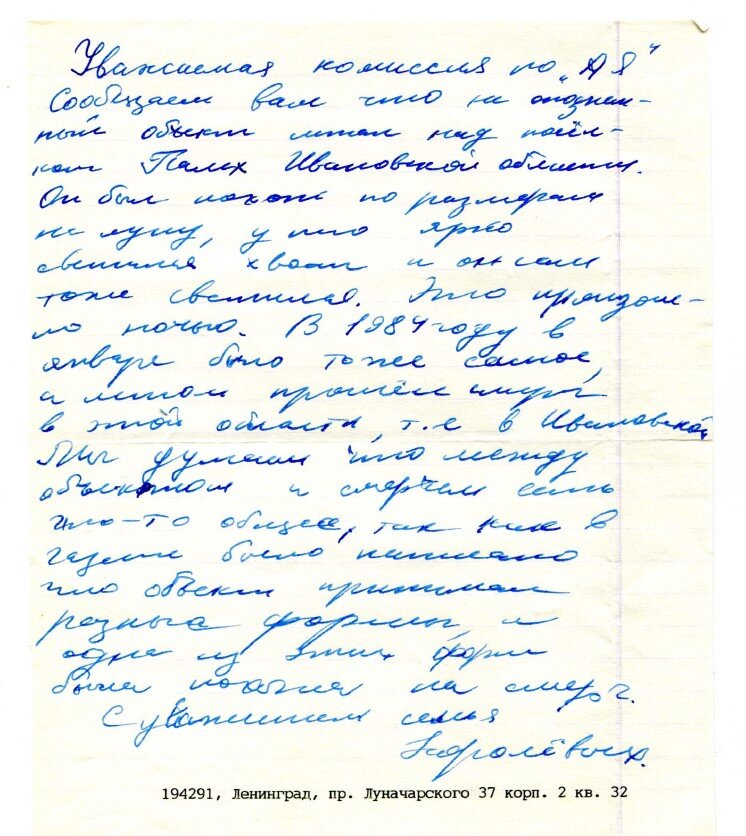 Уважаемая комиссия по „АЯ“
Сообщаем вам что не опознан-
ный объект летал над посёл-
ком Палех Ивановской области.
Он был похож по размерам
на луну, у него ярко
светился хвост и он сам
тоже светился. Это произош-
ло ночью. В 1984 году в
январе было тоже самое,
а летом прошёл смерч
в этой области, т.е в Ивановской
Мы думаем что между
объектом и смерчем есть
что-то общее, так как в
газете было написано
что объект принимал
разные формы, и
одна из этих форм
была похожа на смерч.
С уважением семья
Королёвых.
194291, Ленинград, пр. Луначарского 37 корп. 2 кв. 32